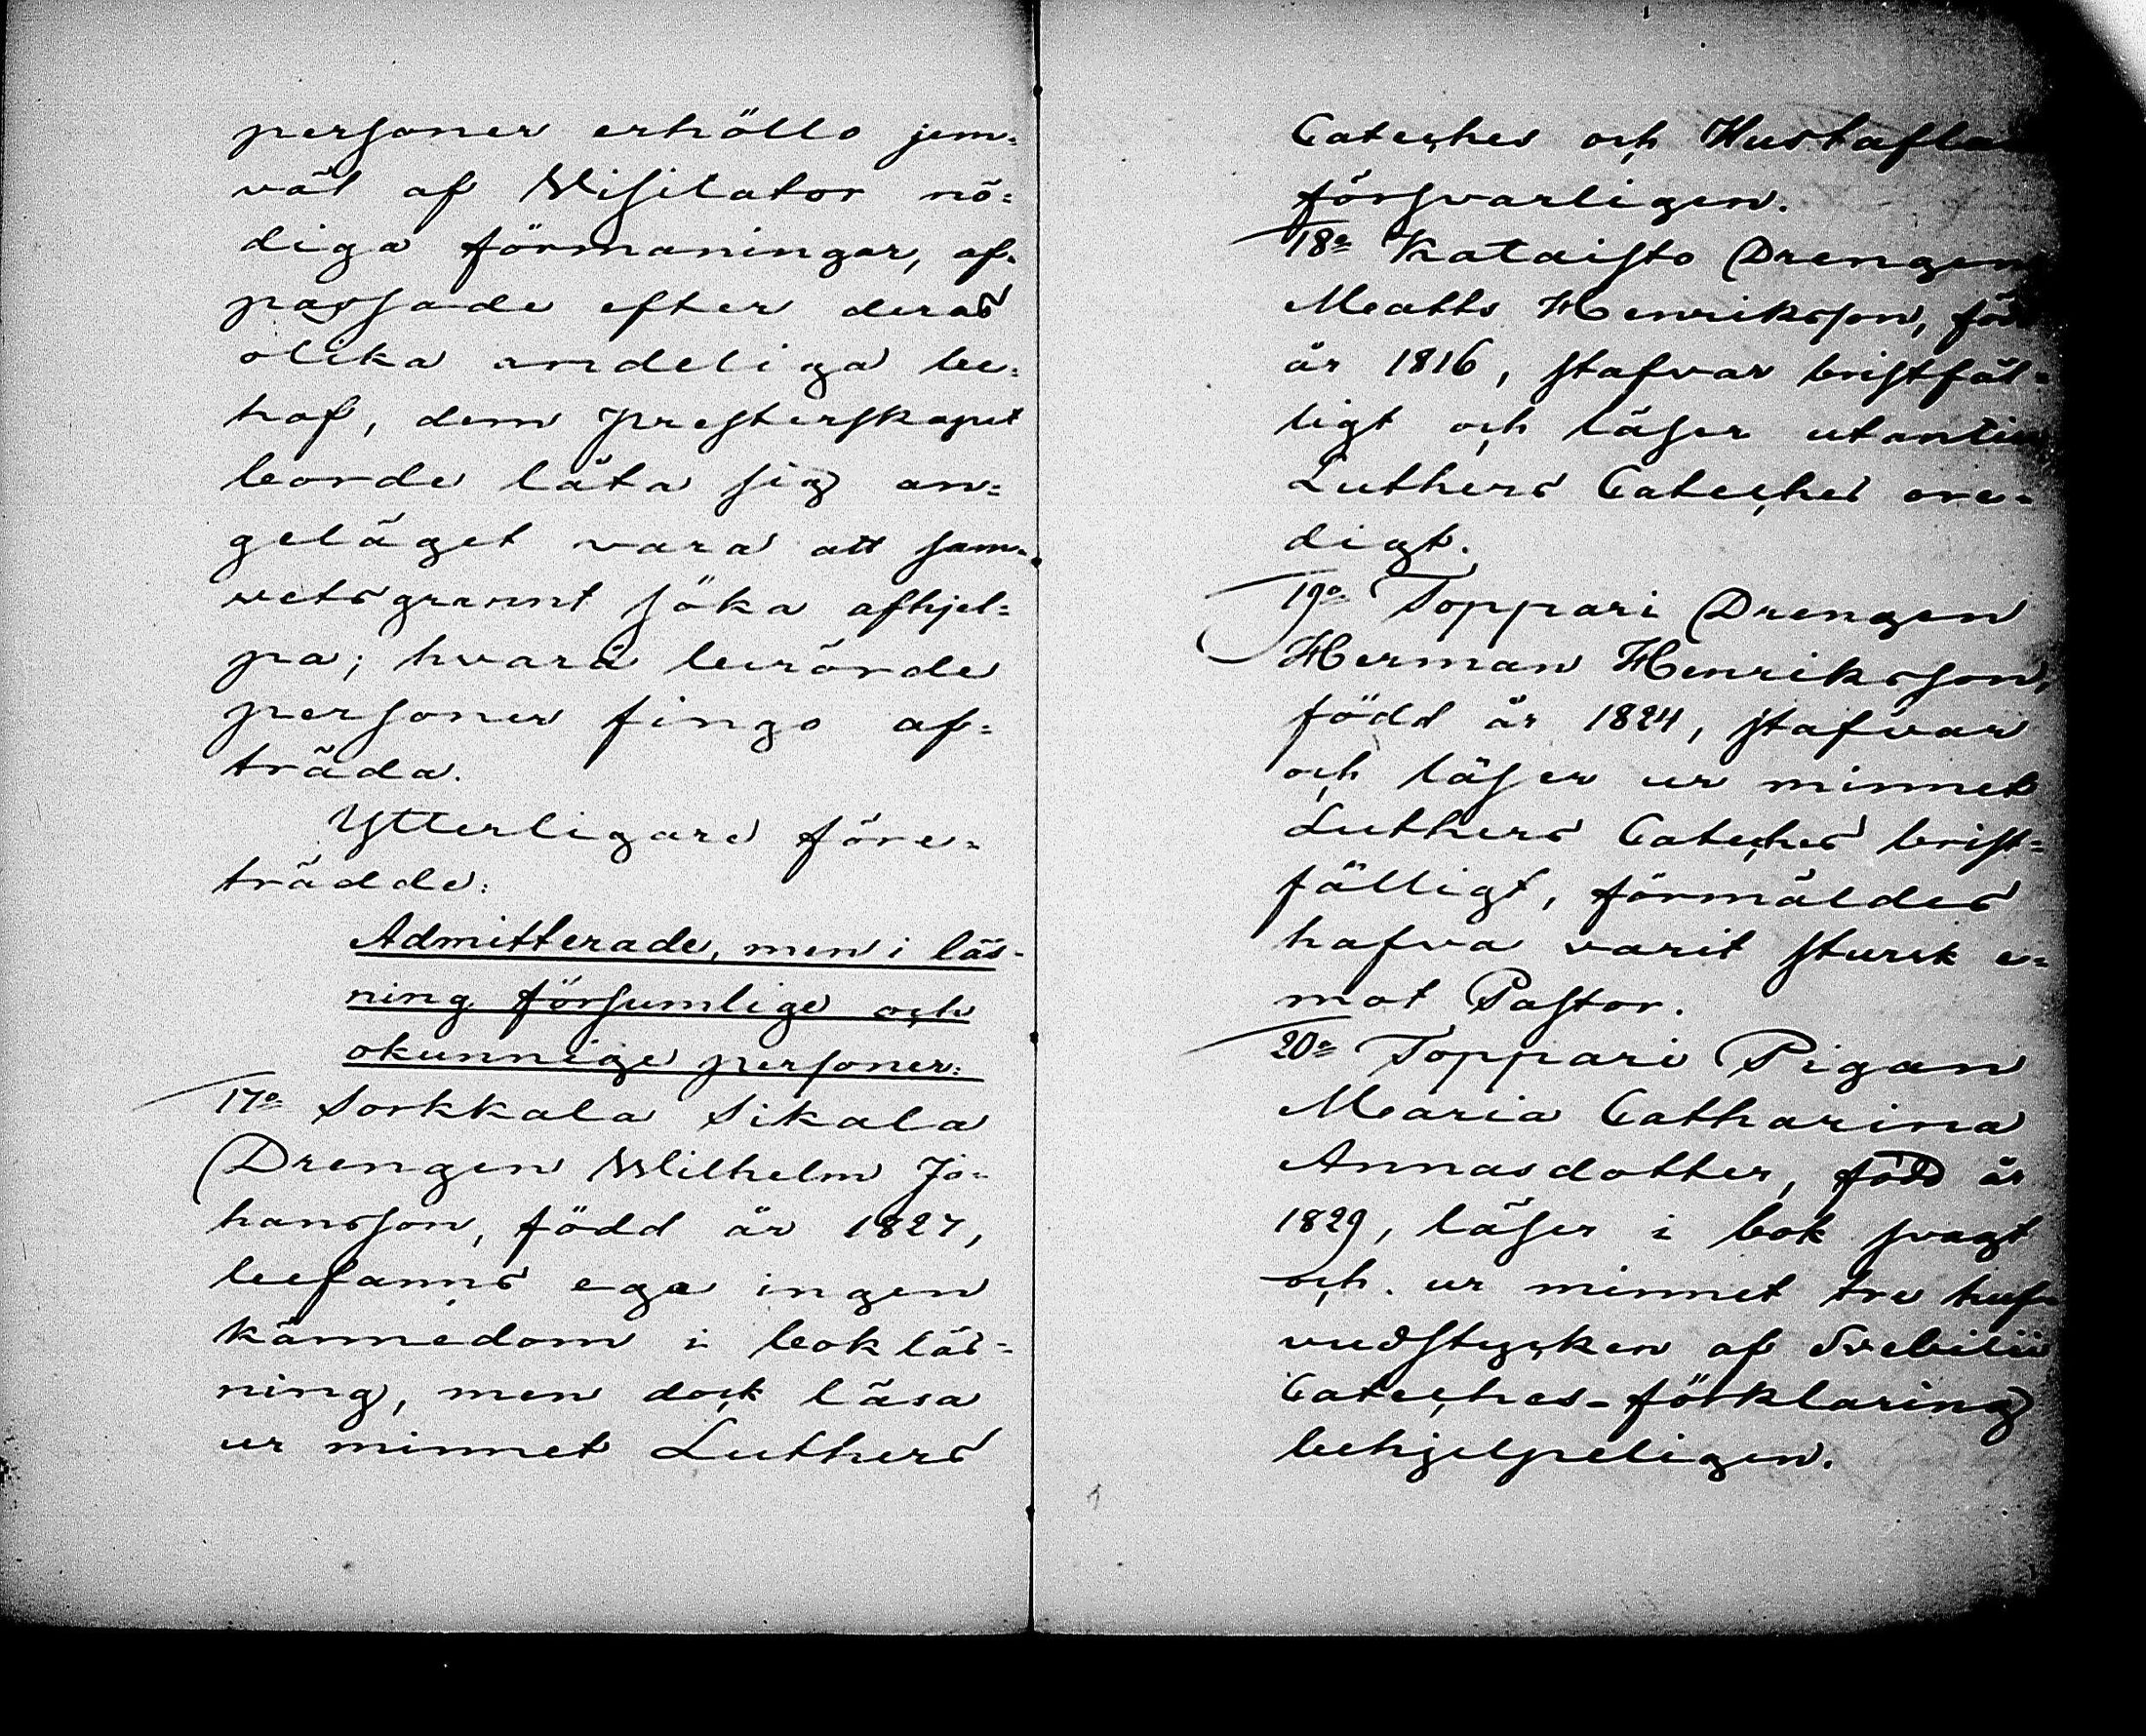 personer erhöllo jem-
väl af Visitator nö-
diga förmaningar, af-
passade efter deras
olika andeliga be-
hof, dem Presterskapet
borde låta sig an-
geläget vara att sam-
vetsgrannt söka afhjel-
pa; hvarå berörde
personer fingo af-
träda.
Ytterligare före-
trädde:
Admitterade, men i läs-
ning försumlige och
okunnige personer:
17o Sorkkala Sikala
Drengen Wilhelm Jo-
hansson, född år 1827,
befanns ega ingen
kännedom i bokläs-
ning, men dock läsa
ur minnet Luthers
Cateches och Hustaflan
försvarligen.
18o Kataisto Drengen
Matts Henriksson, född
år 1816, stafvar bristfäl-
ligt och läser utantill
Luthers Cateches ore-
digt.
19o Toppari Drengen
Herman Henriksson,
född år 1824, stafvar
och läser ur minnet
Luthers Cateches brist-
fälligt, förmäldes
hafva varit stursk e-
mot Pastor.
20o Toppari Pigan
Maria Catharina
Annasdotter, född år
1829, läser i bok svagt
och ur minnet tre huf-
vudstycken af Svebilii
Cateches-förklaring
behjelpeligen.